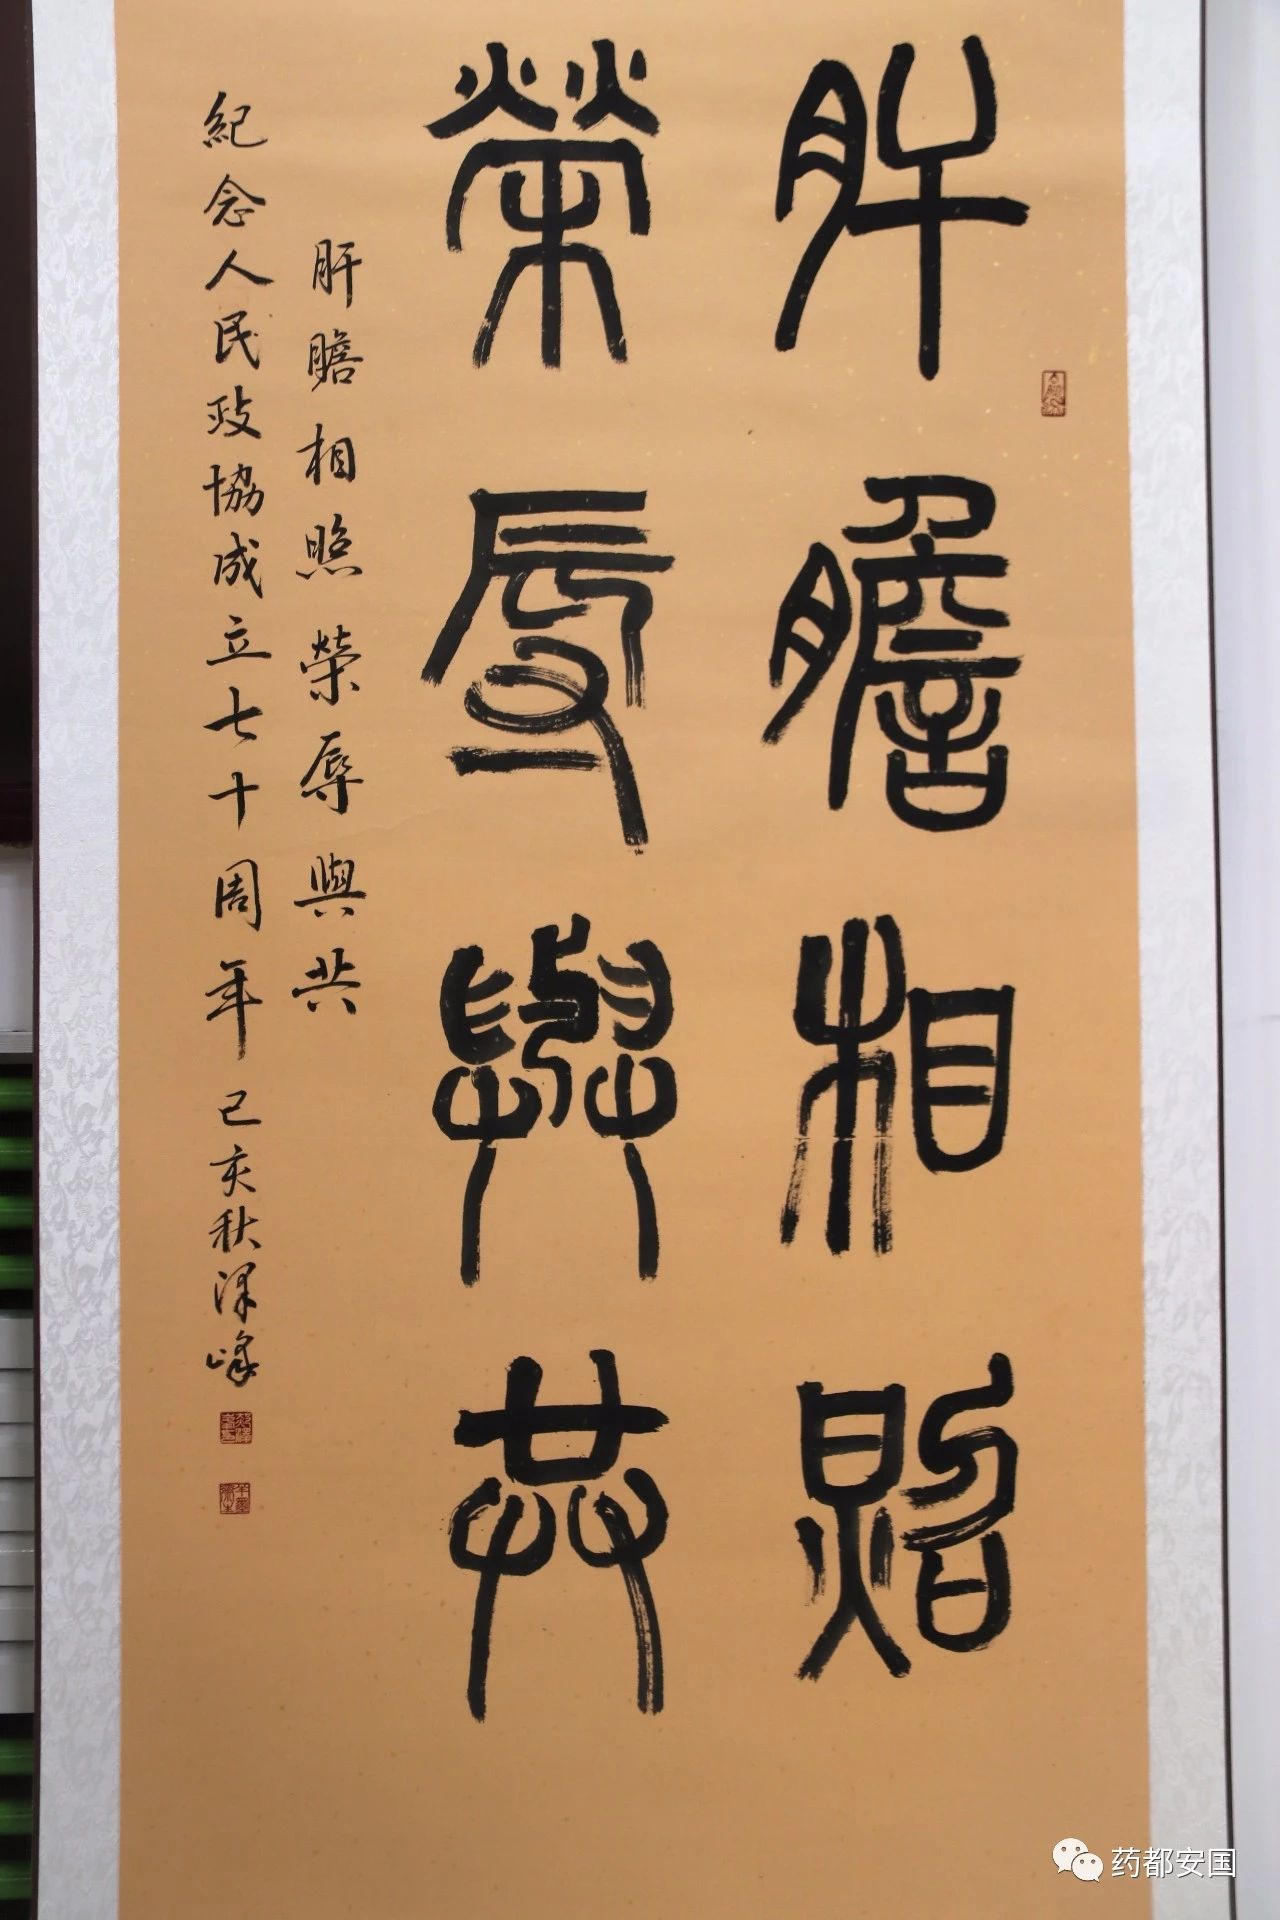 肝膽相照
榮辱與共
肝膽相照榮辱與共
紀念人民政協成立七十周年 己亥秋泽峰
药都安国